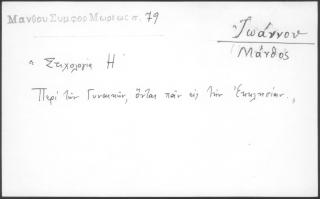 Μανθου Συμφορ Μωρέως σ. 79
Ἰωάννου
Μάνθος
"Στιχολογία Η
Περί τῶν Γυναικῶν, ὅνταν πᾶν εἰς τὴν Ἐκκλησίαν.,